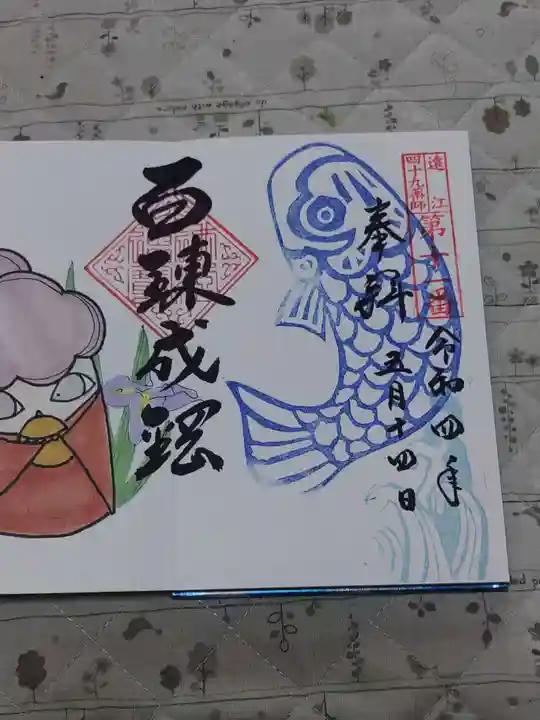 遠江
四十九薬師
第十一番
奉拝
令和四年
五月十四日
百錬成鋼